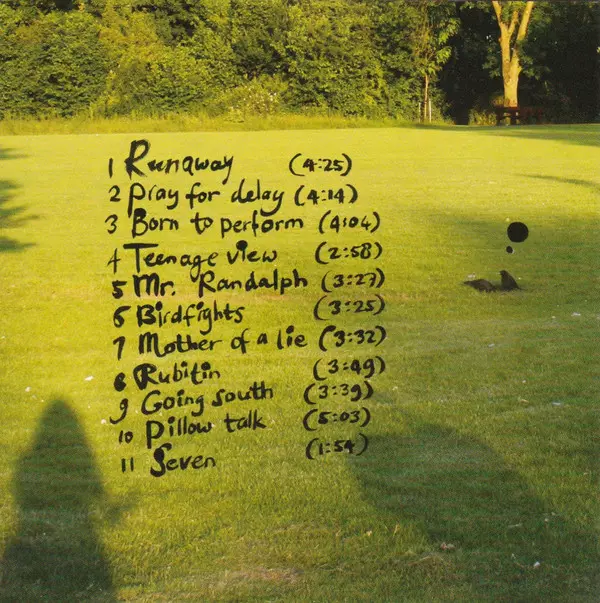 1 Runaway (4:25)
2 Pray for delay (4:14)
3 Born to perform (4:04)
4 Teenage view (2:58)
5 Mr. Randalph (3:27)
6 Birdfights (3:25)
7 Mother of a lie (3:32)
8 Rubitin (3:49)
9 Going south (3:39)
10 Pillow talk (5:03)
11 Seven (1:54)